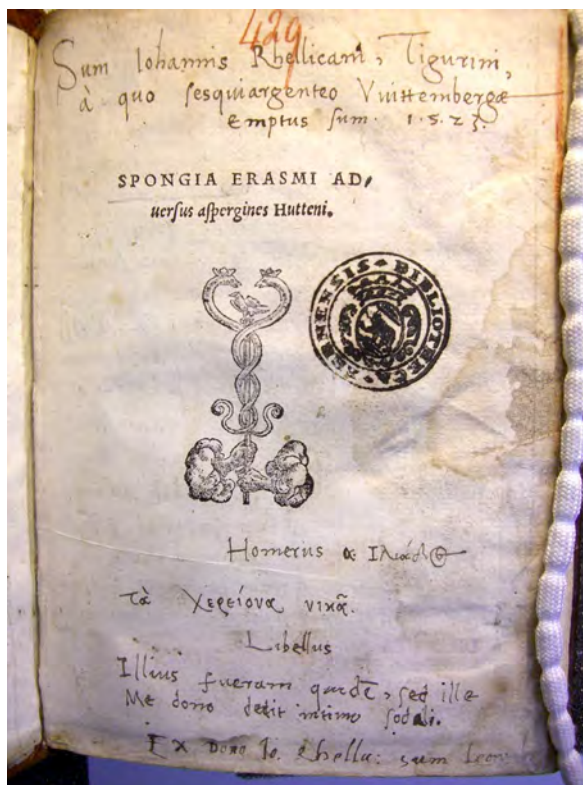 429
Sum Iohannis Rhellicani, Tigurini,
à quo sesquiargenteo Vuittembergæ
emptus sum. 1.5.23.
SPONGIA ERASMI AD,
uersus aspergines Hutteni.
BERNENSIS BIBLIOTHECA
Homerus α Ιλιάδ
τὰ χερείονα νικᾷ.
Libellus
Illius fueram quidē, sed ille
Me dono dedit intimo sodali.
Ex Dono Io. Rhellic: sum